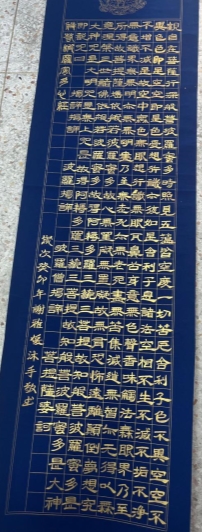 觀自在菩薩行深般若波羅蜜多時照見五蘊皆空度一切苦厄舍利子色不異空空不
異色色即是空空即是色受想行識亦復如是舍利子是諸法空相不生不滅不垢不淨
不增不減是故空中無色無受想行識無眼耳鼻舌身意無色聲香味觸法無眼界乃至
無意識界無無明亦無無明盡乃至無老死亦無老死盡無苦集滅道無智亦無得以無
所得故菩提薩埵依般若波羅蜜多故心無罣礙無罣礙故無有恐怖遠離顛倒夢想究
竟涅槃三世諸佛依般若波羅蜜多故得阿耨多羅三藐三菩提故知般若波羅蜜多是大神
咒是大明咒是無上咒
即說咒曰 揭諦揭諦 波羅揭諦 波羅僧揭諦 菩提薩婆訶
般若波羅蜜多心經
歲次癸卯年謝雅沐手敬書